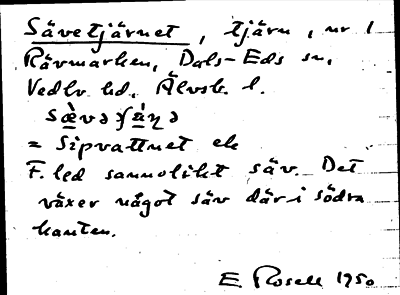 Sävetjärnet, tjärn, nr 1
Rävmarken, Dals-Eds sn,
Vedbo hd, Älvsb. l.
= Sipvattnet ek
F. led sannolikt säv. Det
växer något säv där i södra
kanten.
E. Rosell 1950